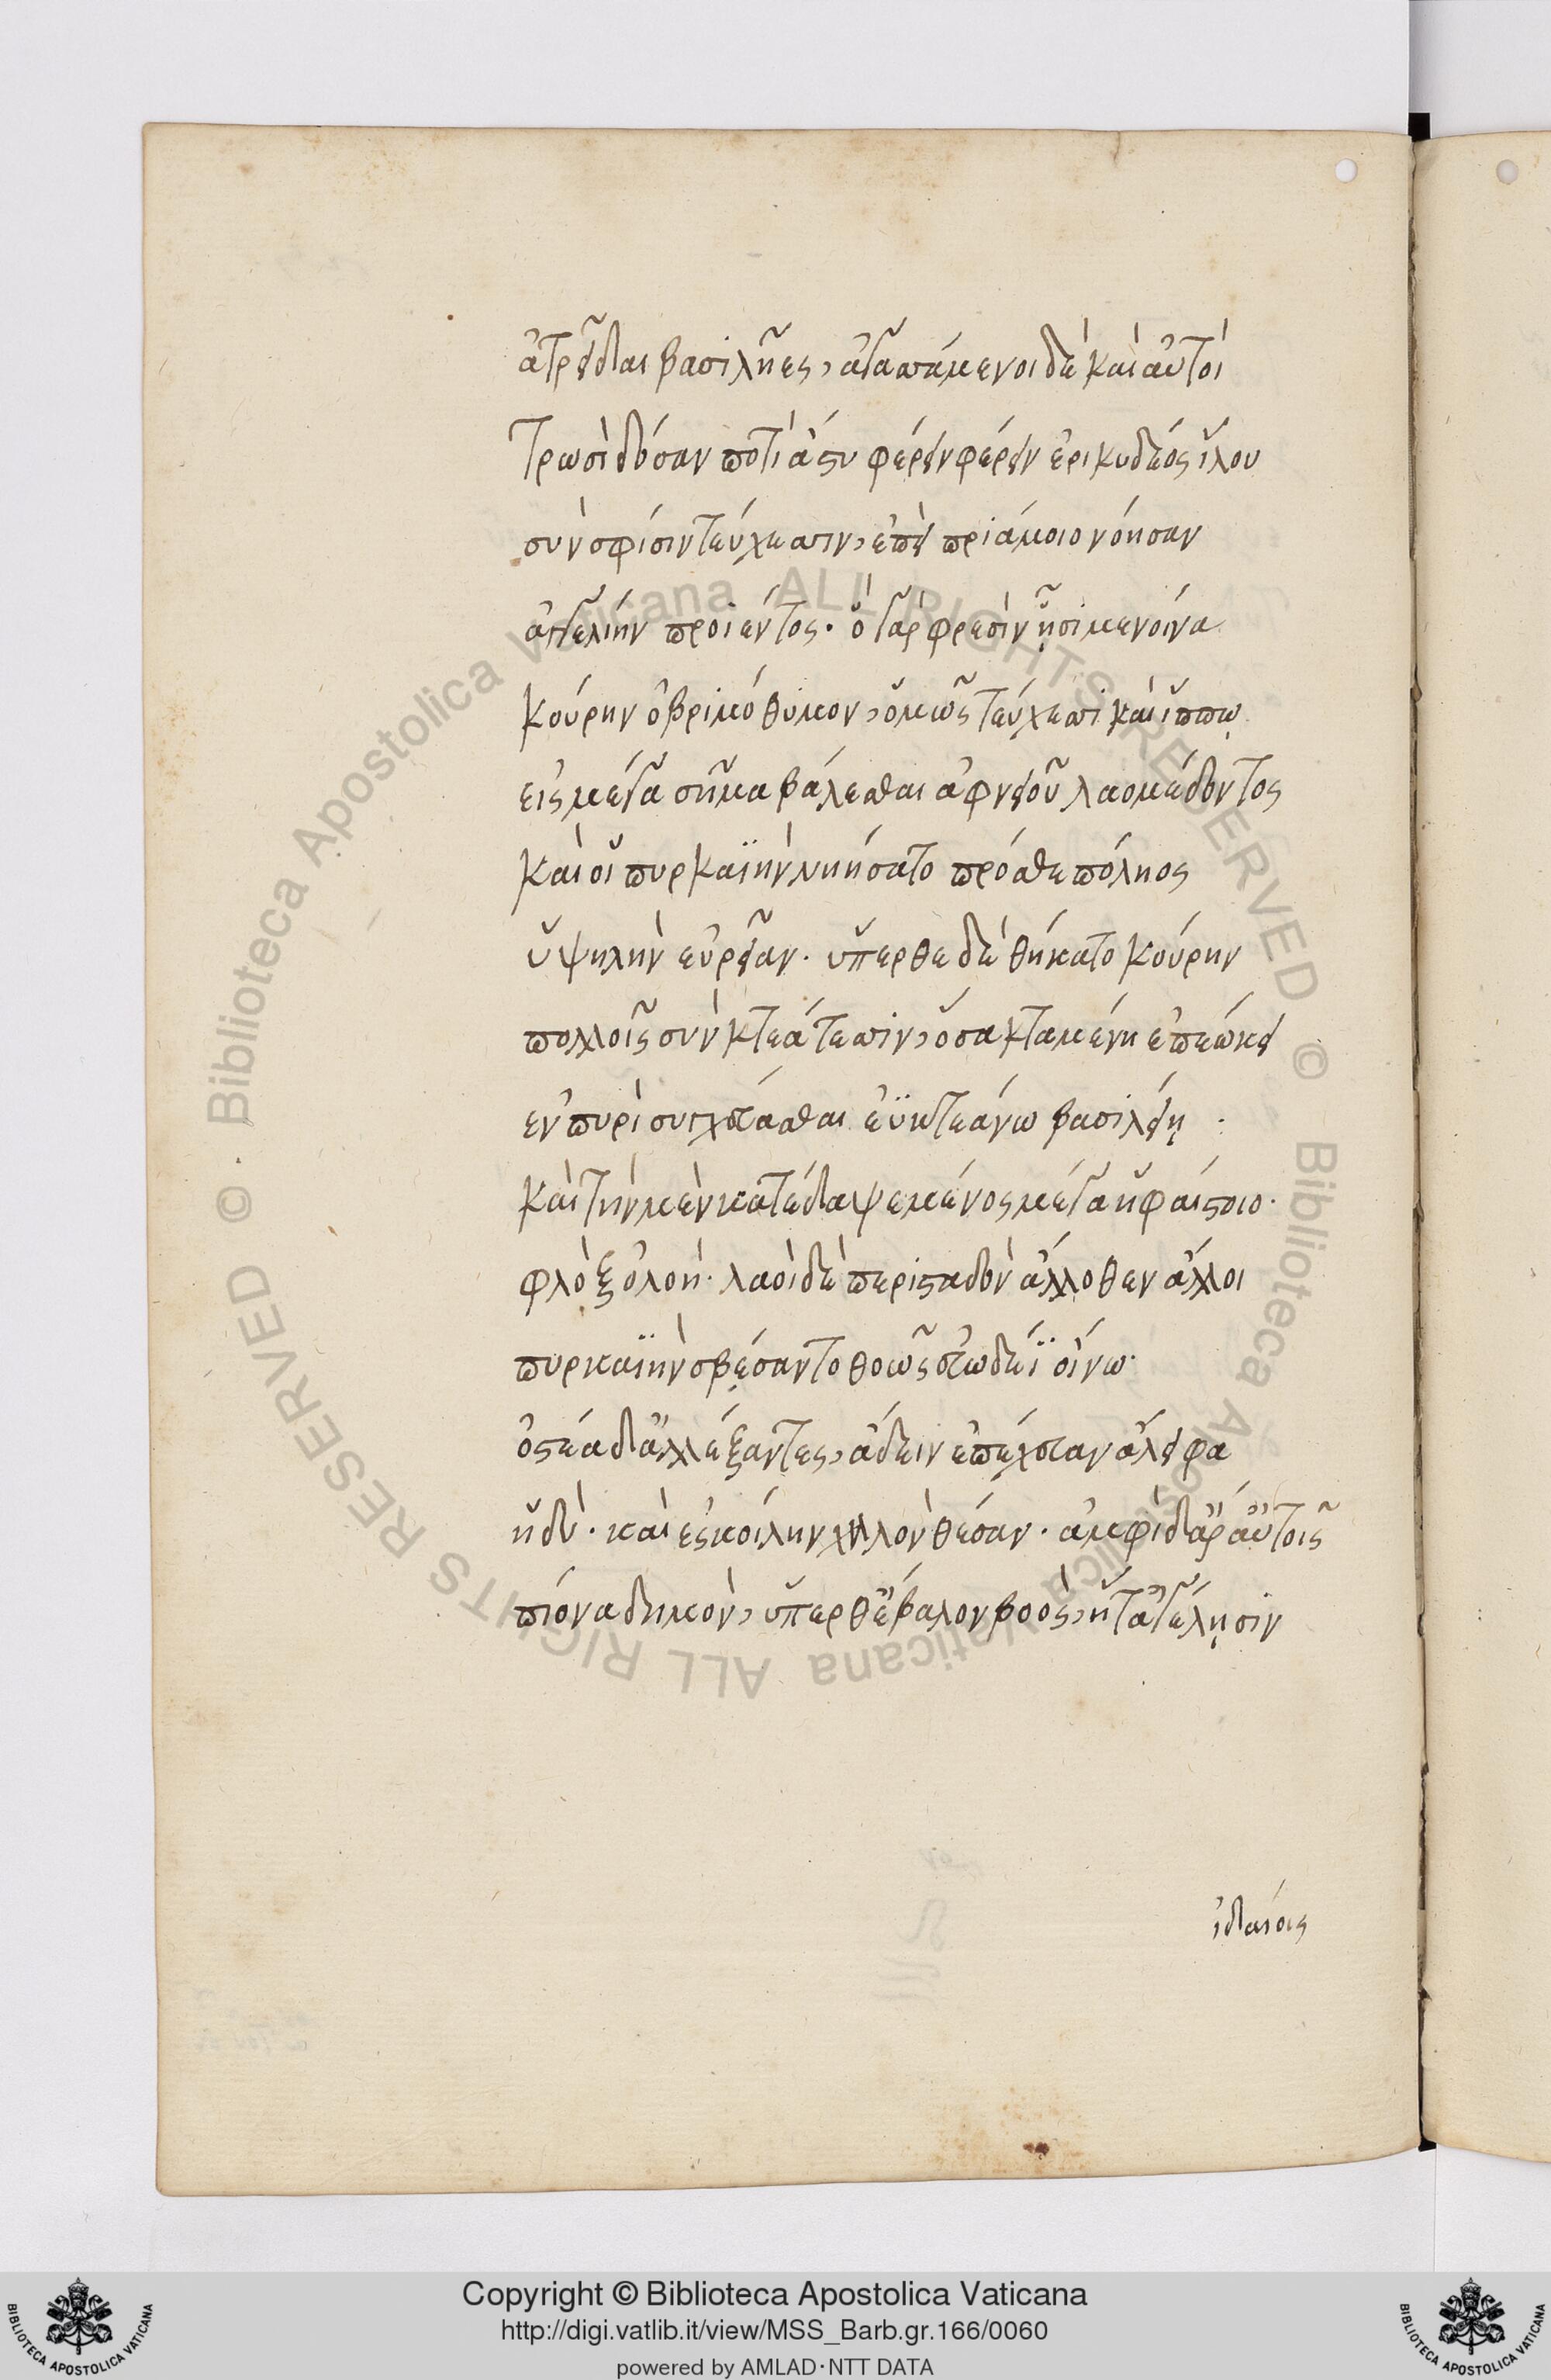 ἀτρεῖδαι βασιλῆες, ἀγασσάμενοι δὲ καὶ αὐτοὶ
Τρωσὶ δόσαν ποτὶ ἄστυ φέρειν φέρειν ἐρικυδέος ἴλου
σὺν σφίσιν τεύχεσσιν, ἐπεὶ πριάμοιο νόησαν
ἀγγελίην προϊέντος· ὁ γὰρ φρεσὶν ᾗσι μενοίνα
κούρην ὀβριμόθυμον, ὅμως τεύχεσσι καὶ ἵππῳ
εἰς μέγα σῆμα βάλεσθαι ἀφνειοῦ λαομέδοντος
καὶ οἱ πυρκαϊὴν νηήσατο πρόσθε πόληος
ὑψηλὴν εὐρεῖαν· ὕπερθε δὲ θήκατο κούρην
πολλοῖς σὺν κτεάτεσσιν, ὅσα κταμένη ἐπεῴκει
ἐν πυρὶ συγκειᾶσθαι ἐϋκτεάνω βασιλείῃ·
καὶ τὴν μὲν κατέδαψε μένος μέγα ἡφαίστοιο·
φλὸξ ὀλοή· λαοὶ δὲ περισταδὸν ἄλλοθεν ἄλλοι
πυρκαϊὴν σβέσαντο θοῶς εὐώδεϊ οἴνω·
ὀστέα δ᾽ ἀλλέξαντες, ἄδειν ἐπέχευαν ἄλειφα
ἡδύ· καὶ ἐς κοίλην χηλὸν θέσαν· ἀμφὶ δ᾽ ἄρ᾽ αὐτοῖς
πίονα δημόν, ὕπερθ᾽ ἔβαλον βοός, ἥ τ᾽ ἀγέλῃσιν
ἰδαίοις
Copyright © Biblioteca Apostolica Vaticana
http://digi.vatlib.it/view/MSS_Barb.gr.166/0060
powered by AMLAD·NTT DATA